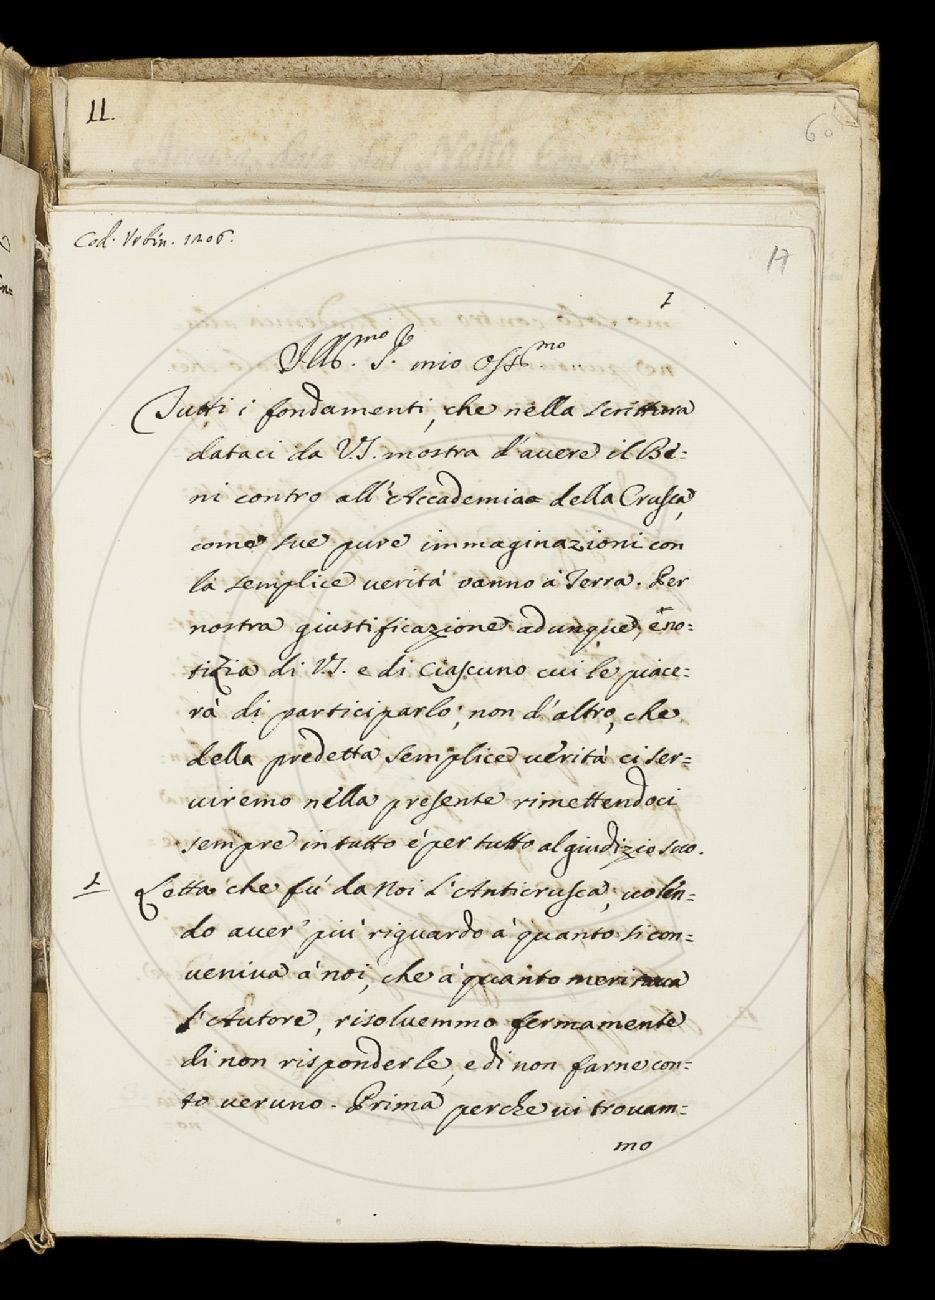 11.
60
Cod. Urbin. 1206.
17
1
Ill.mo S.r mio Oss.mo
Tutti i fondamenti, che nella scrittura
dataci da V.S. mostra d'avere il Be=
ni contro all'Accademia della Crusca,
come sue pure immaginazioni con
la semplice verità vanno à Terra. Per
nostra giustificazione adunque, è no=
tizia di V.S. e di ciascuno cui le piace=
rà di participarlo; non d'altro, che
della predetta semplice verità ci ser=
viremo nella presente rimettendoci
sempre in tutto è per tutto al giudizio suo.
1 Letta che fù da noi l'Anticrusca, volen=
do aver' più riguardo à quanto si con=
veniva à noi, che à quanto meritava
l'Autore, risolvemmo fermamente
di non risponderle, e di non farne con=
to veruno. Prima perche vi trovam=
mo